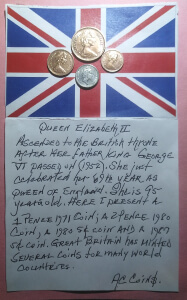 QUEEN ELIZABETH II
ASCENDED TO THE BRITISH THRONE
AFTER HER FATHER KING GEORGE
VI PASSED ON (1952). SHE JUST
CELEBRATED HER 69th YEAR AS
QUEEN OF ENGLAND. SHE IS 95
YEARS OLD. HERE I PRESENT A
1 PENCE 1971 COIN, A 2 PENCE 1980
COIN, A 1980 5¢ COIN AND A 1989
5¢ COIN. GREAT BRITAIN HAS MINTED
SEVERAL COINS FOR MANY WORLD
COUNTRIES.
AC COINS